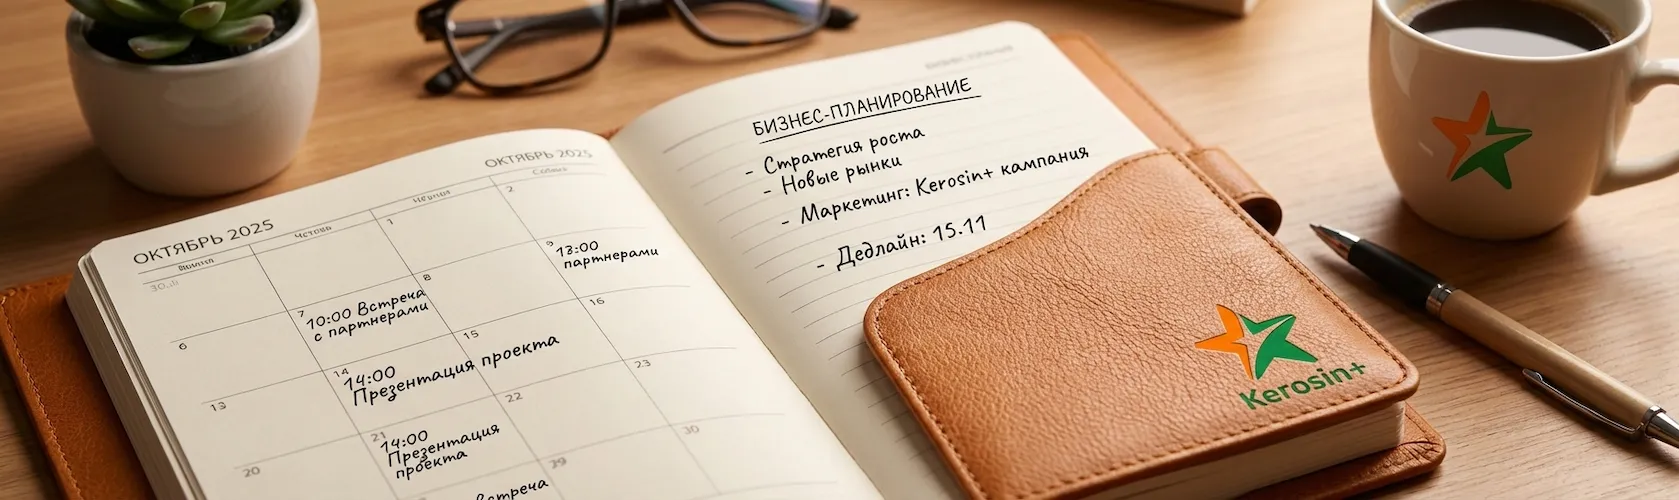 ОКТЯБРЬ 2025
ОКТЯБРЬ 2025
1
2
6
7
10:00 Встреча
с партнерами
8
9
13:00
партнерами
13
14
14:00
Презентация проекта
15
16
20
21
14:00
Презентация
проекта
22
23
встреча
29
30
БИЗНЕС-ПЛАНИРОВАНИЕ
- Стратегия роста
- Новые рынки
- Маркетинг: Kerosin+ кампания
- Дедлайн: 15.11
Kerosin+